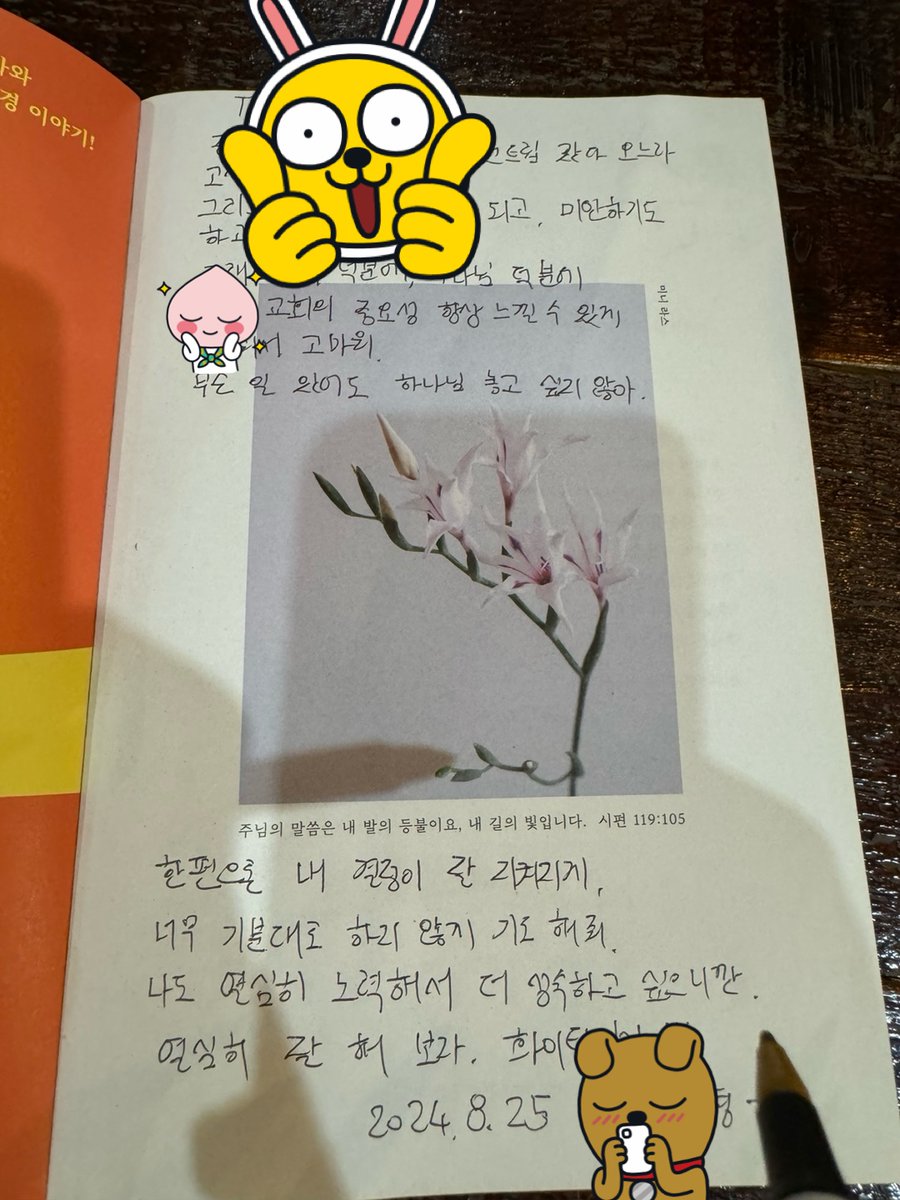 와
경 이야기!
찾아 오느라
되고, 미안하기도
하고
덕분에, 하나님 덕분에
교회의 중요성 항상 느낄 수 있게
고마워.
무슨 일 있어도 하나님 놓고 싶지 않아.
주님의 말씀은 내 발의 등불이요, 내 길의 빛입니다. 시편 119:105
한편으론 내 열정이 잘 지켜지게,
너무 기분대로 하지 않게 기도 해줘.
나도 열심히 노력해서 더 성숙하고 싶으니깐.
열심히 잘 해 보자.
2024.8.25
형